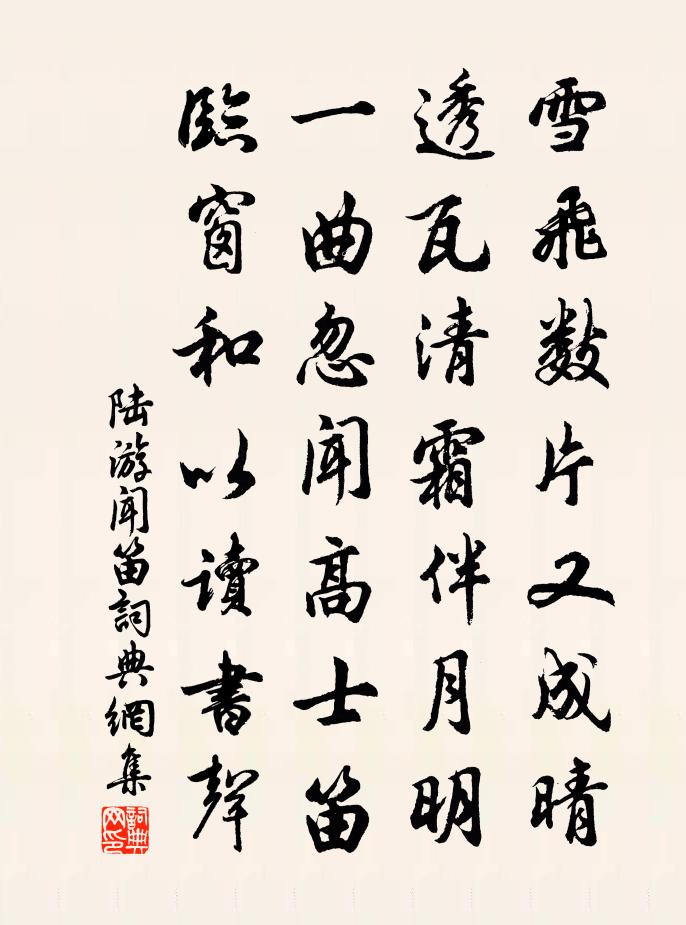 雪飛数片又成晴
透瓦清霜伴月明
一曲忽闻高士笛
臨窗和以讀書聲
陆游闻笛詞典網集
詞典网印